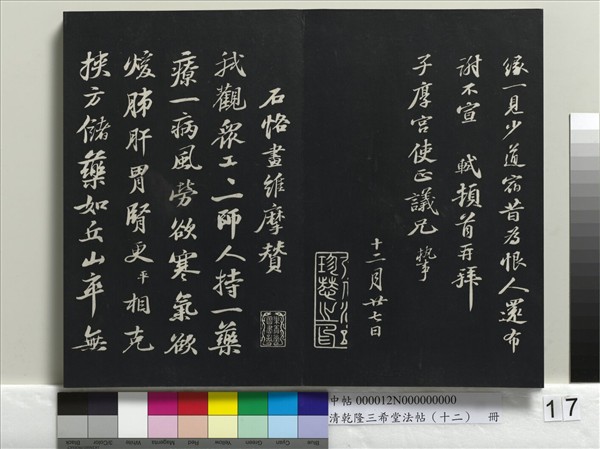 緣一見少道宿昔爲恨人還布
謝不宣 軾頓首再拜
子厚宮使正議兄執事
十二月廿七日
石恪畫維摩贊
我觀衆工工師人持一藥
療一病風勞欲寒氣欲
煖肺肝胃腎更平相克
挾方儲藥如丘山卒無
中帖 000012N000000000
清乾隆三希堂法帖（十二） 冊
17
Black
3/Color
White
Magenta
Red
Yellow
Green
Cyan
Blue